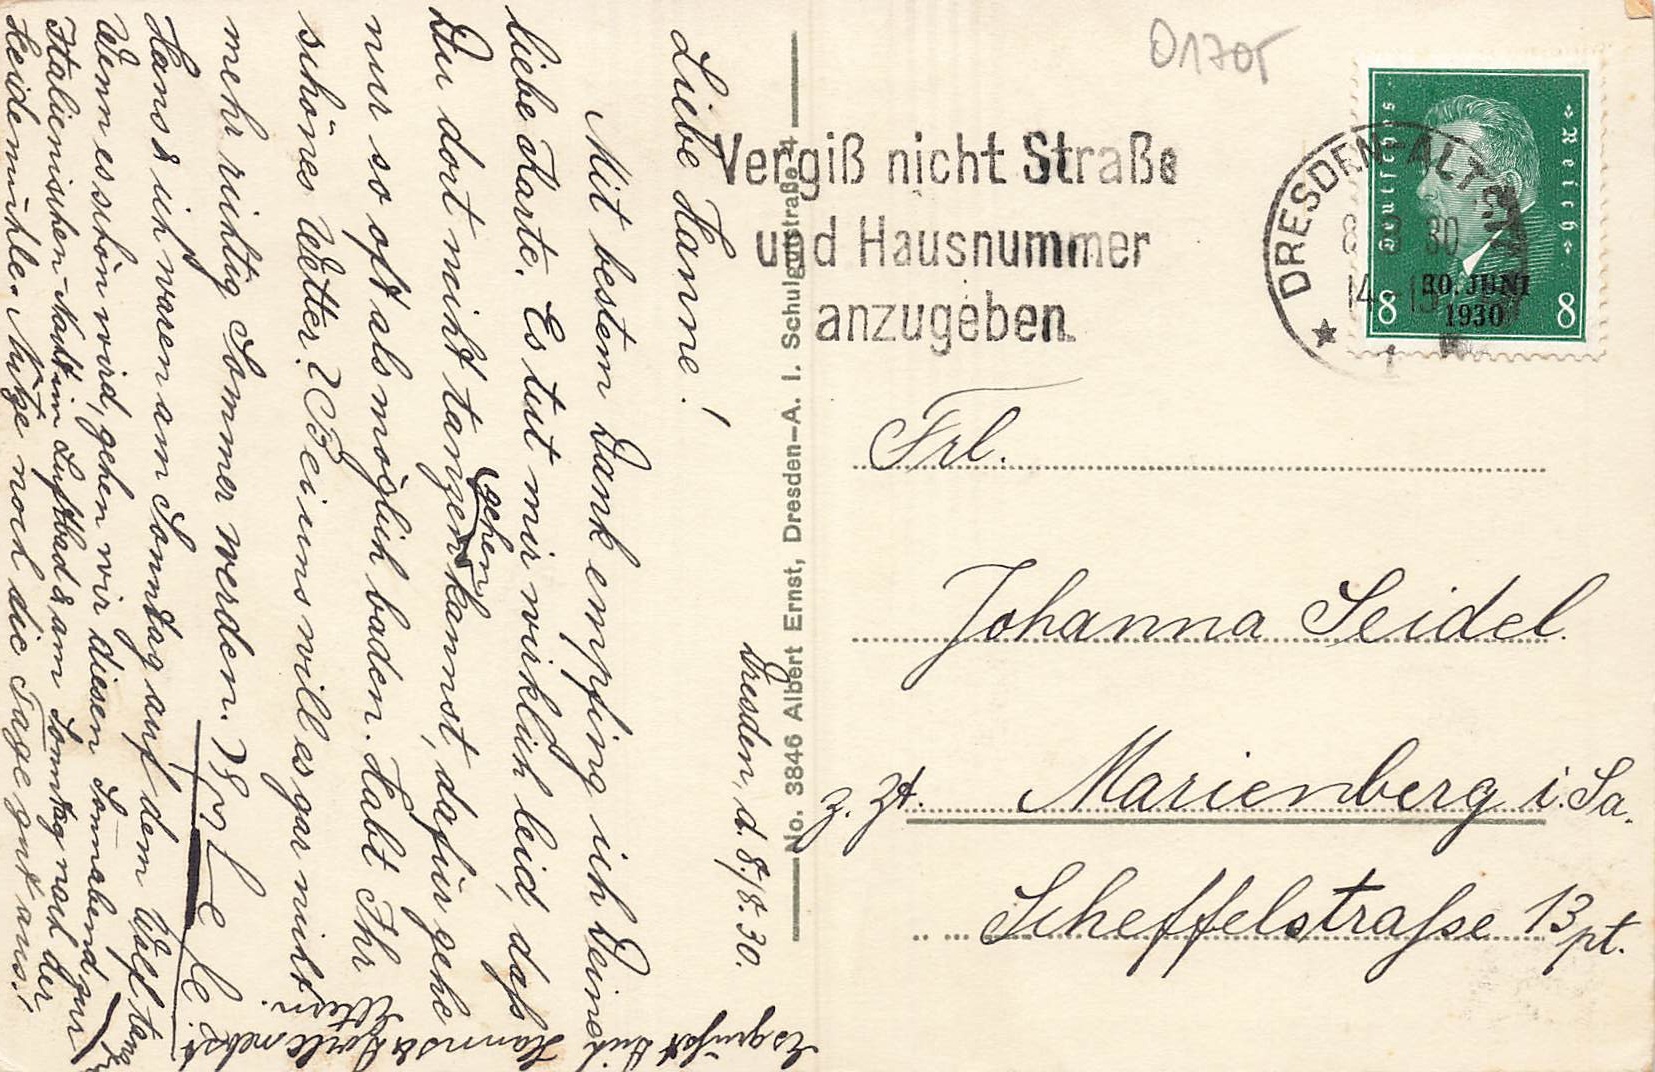 01705
Deutsches Reich
8 8
30. JUNI
1930
DRESDEN-ALTST.
8 8 30
14 15
Vergiß nicht Straße
und Hausnummer
anzugeben
Frl.
Johanna Seidel.
z. Zt. Marienberg i. Sa.
Scheffelstraße 13 pt.
No. 3846 Albert Ernst, Dresden-A. 1. Schulgutstraße 4
Dresden, d. 8./8. 30.
Liebe Hanne!
Mit bestem Dank empfing ich Deine
liebe Karte. Es tut mir wirklich leid, daß
Du dort nicht tanzen (gehen) kannst, dafür gehe
nur so oft als möglich baden. Habt Ihr
schönes Wetter? Bei uns will es gar nicht
mehr richtig Sommer werden.
Hans & ich waren am Sonntag auf dem
Wenn es schön wird, gehen wir diesen Sonnabend zur
Italienischen Nacht im Luftbad & am Sonntag nach der
Heidemühle. Nütze noch die Tage gut aus!
Es grüßt Dich
Hanns & nebst
Eltern.